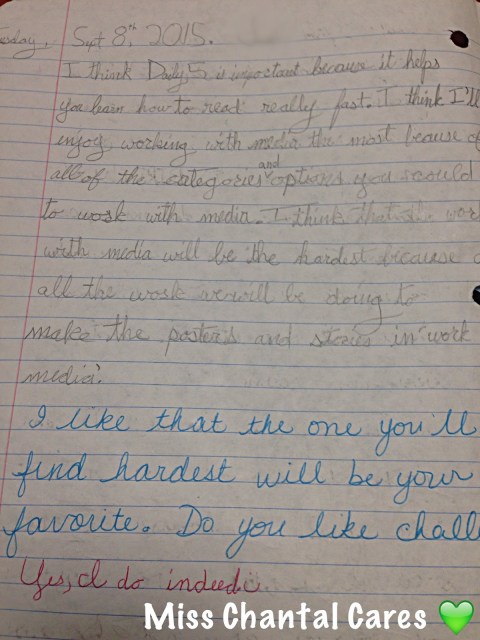 sday, Sept 8th, 2015.
I think Daily 5 is important because it helps
you learn how to read really fast. I think I'll
enjoy working with media the most because of
all of the categories and options you could
to work with media. I think that wor
with media will be the hardest because o
all the work we will be doing to
make the posters and stories in work
media.
I like that the one you'll
find hardest will be your
favorite. Do you like chall
Yes, I do indeed.
Miss Chantal Cares 💚